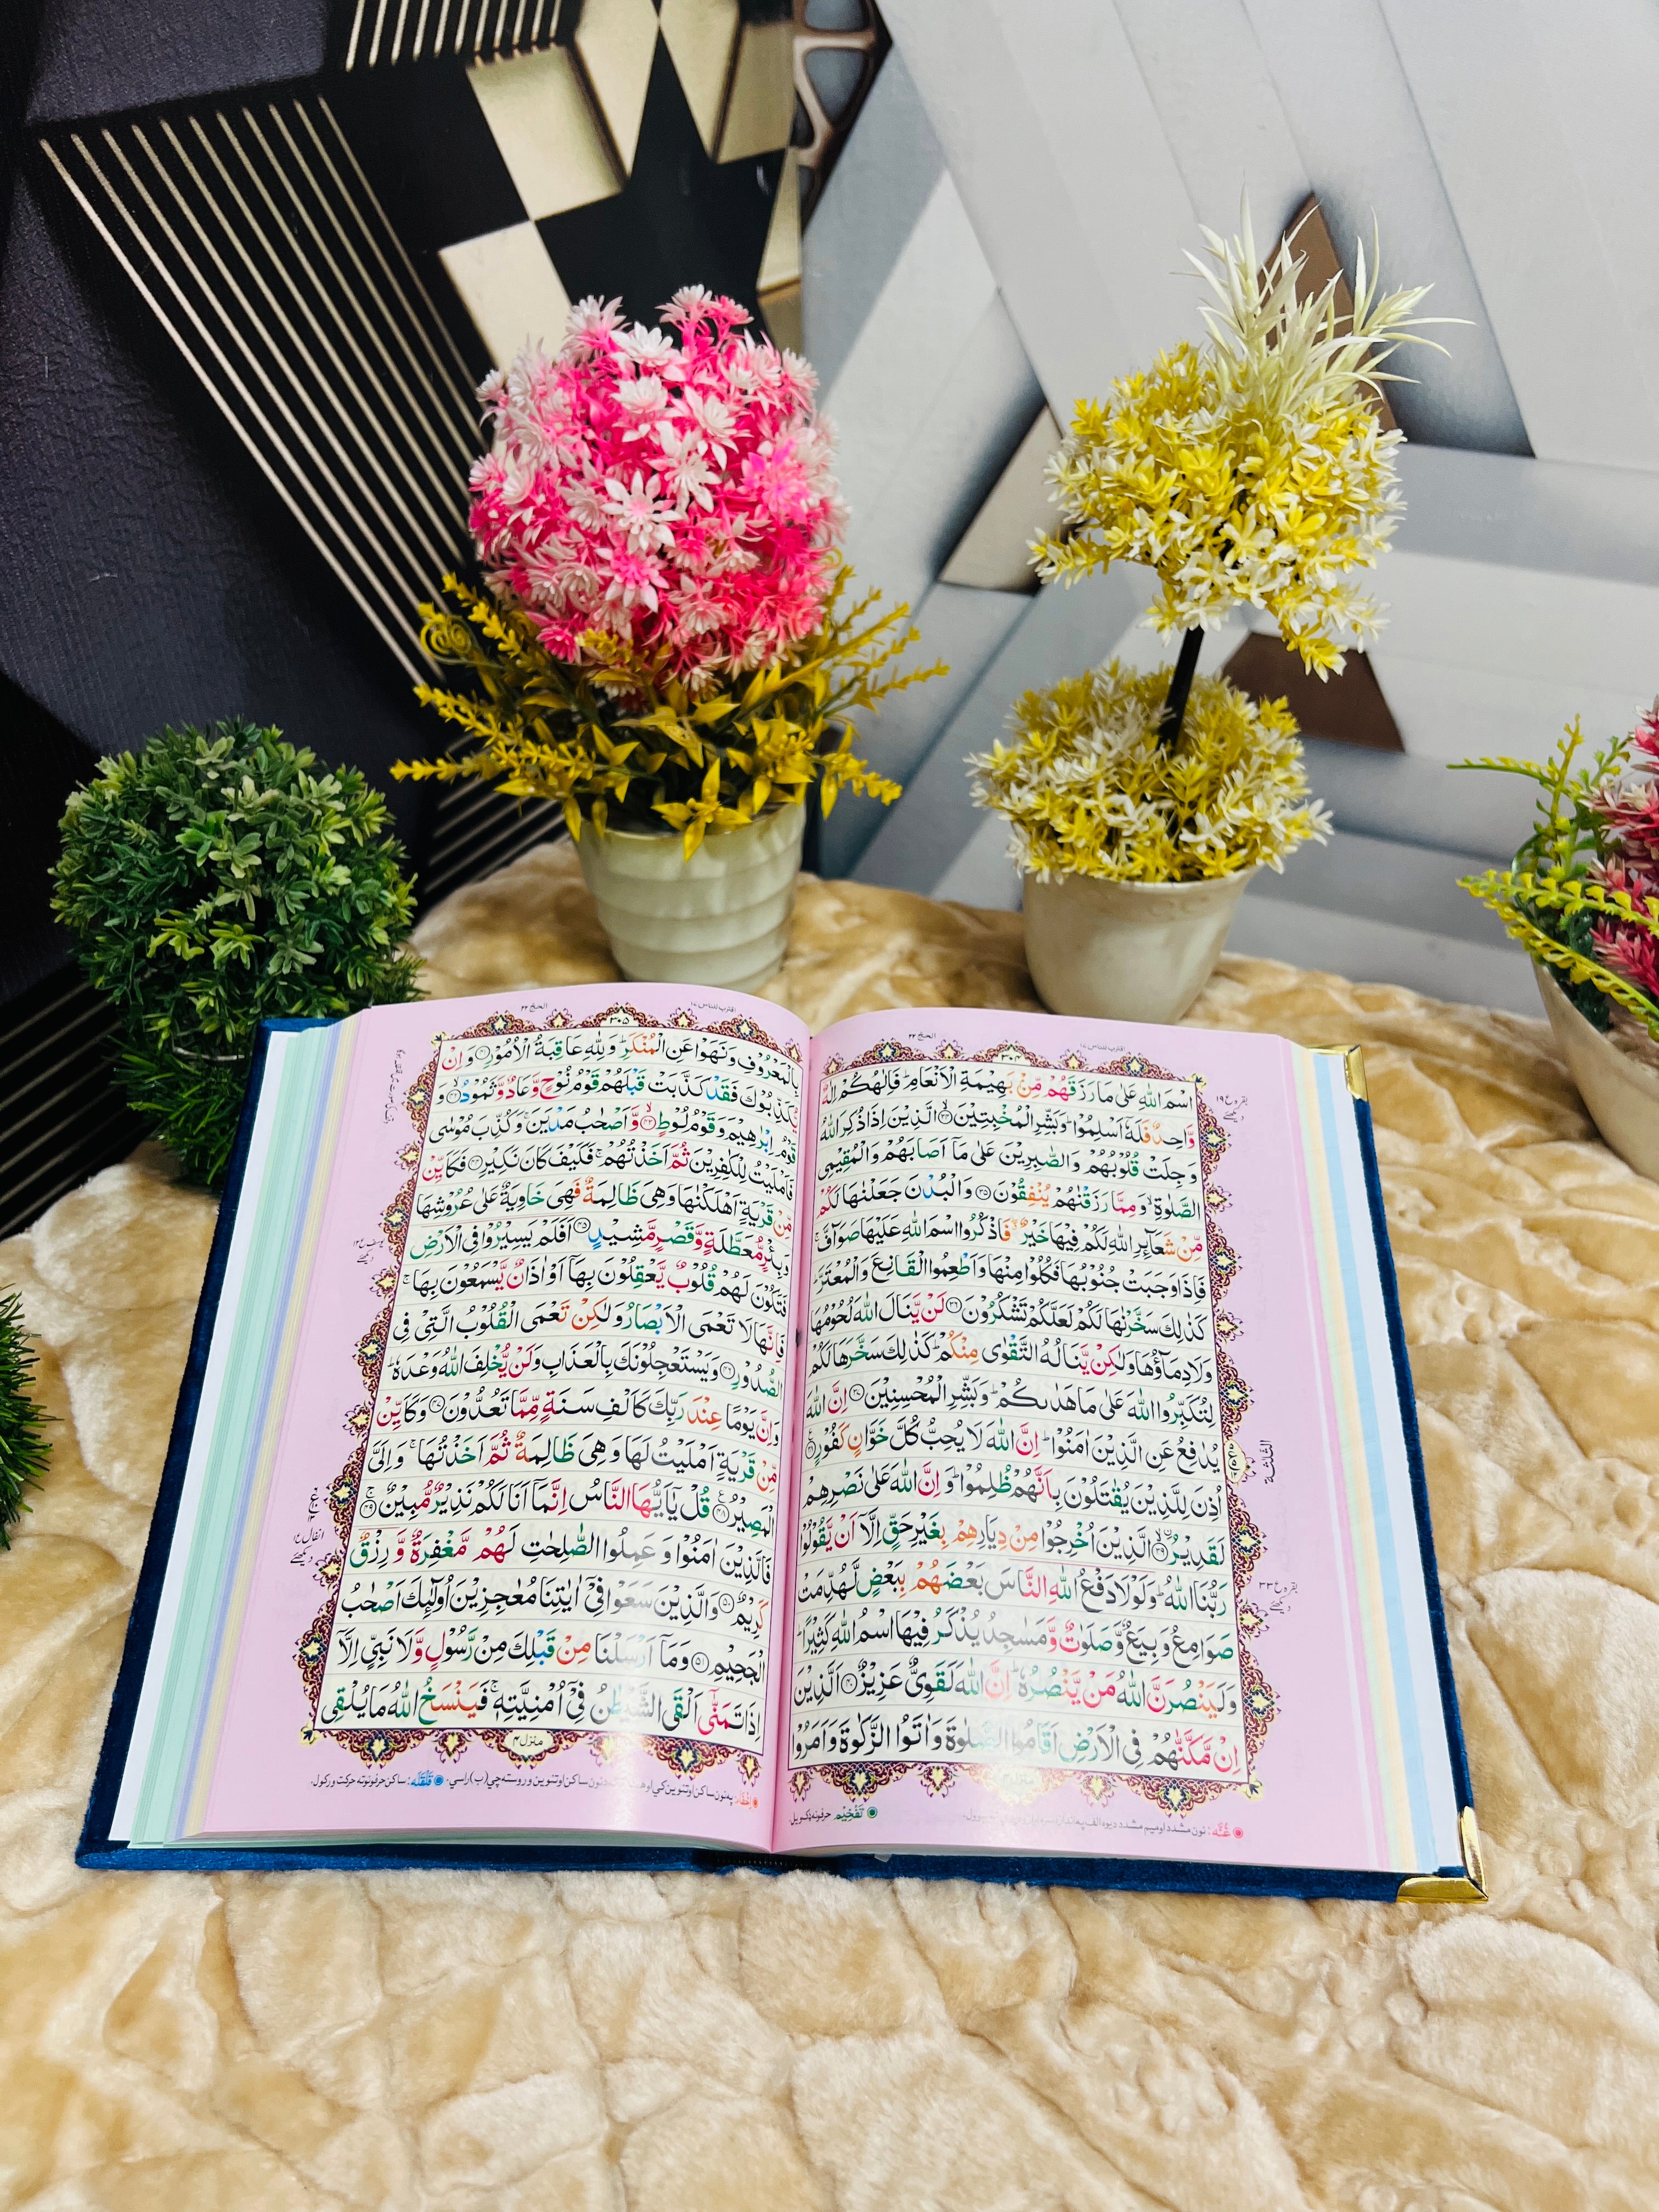 اقترب للناس ١٧
الحج ٢٢
٣٠٤
اسْمَ اللهِ عَلٰى مَا رَزَقَهُمْ مِّنْۢ بَهِيْمَةِ الْاَنْعَامِ ؕ فَاِلٰهُكُمْ اِلٰهٌ
وَّاحِدٌ فَلَهٗۤ اَسْلِمُوْا ؕ وَبَشِّرِ الْمُخْبِتِيْنَ ۙ﴿۳۴﴾ الَّذِيْنَ اِذَا ذُكِرَ اللهُ
وَجِلَتْ قُلُوْبُهُمْ وَالصّٰبِرِيْنَ عَلٰى مَاۤ اَصَابَهُمْ وَالْمُقِيْمِى
الصَّلٰوةِ ۙ وَمِمَّا رَزَقْنٰهُمْ يُنْفِقُوْنَ ﴿۳۵﴾ وَالْبُدْنَ جَعَلْنٰهَا لَكُمْ
مِّنْ شَعَآئِرِ اللهِ لَكُمْ فِيْهَا خَيْرٌ ۖ فَاذْكُرُوا اسْمَ اللهِ عَلَيْهَا صَوَآفَّ ۚ
فَاِذَا وَجَبَتْ جُنُوْبُهَا فَكُلُوْا مِنْهَا وَاَطْعِمُوا الْقَانِعَ وَالْمُعْتَرَّ ؕ
كَذٰلِكَ سَخَّرْنٰهَا لَكُمْ لَعَلَّكُمْ تَشْكُرُوْنَ ﴿۳۶﴾ لَنْ يَّنَالَ اللهَ لُحُوْمُهَا
وَلَا دِمَآؤُهَا وَلٰكِنْ يَّنَالُهُ التَّقْوٰى مِنْكُمْ ؕ كَذٰلِكَ سَخَّرَهَا لَكُمْ
لِتُكَبِّرُوا اللهَ عَلٰى مَا هَدٰىكُمْ ؕ وَبَشِّرِ الْمُحْسِنِيْنَ ﴿۳۷﴾ اِنَّ اللهَ
يُدٰفِعُ عَنِ الَّذِيْنَ اٰمَنُوْا ؕ اِنَّ اللهَ لَا يُحِبُّ كُلَّ خَوَّانٍ كَفُوْرٍ ﴿۳۸﴾
اُذِنَ لِلَّذِيْنَ يُقٰتَلُوْنَ بِاَنَّهُمْ ظُلِمُوْا ؕ وَاِنَّ اللهَ عَلٰى نَصْرِهِمْ
لَقَدِيْرُ ۙ﴿۳۹﴾ الَّذِيْنَ اُخْرِجُوْا مِنْ دِيَارِهِمْ بِغَيْرِ حَقٍّ اِلَّاۤ اَنْ يَّقُوْلُوْا
رَبُّنَا اللهُ ؕ وَلَوْلَا دَفْعُ اللهِ النَّاسَ بَعْضَهُمْ بِبَعْضٍ لَّهُدِّمَتْ
صَوَامِعُ وَبِيَعٌ وَّصَلَوٰتٌ وَّمَسٰجِدُ يُذْكَرُ فِيْهَا اسْمُ اللهِ كَثِيْرًا ؕ
وَلَيَنْصُرَنَّ اللهُ مَنْ يَّنْصُرُهٗ ؕ اِنَّ اللهَ لَقَوِىٌّ عَزِيْزٌ ﴿۴۰﴾ الَّذِيْنَ
اِنْ مَّكَّنّٰهُمْ فِى الْاَرْضِ اَقَامُوا الصَّلٰوةَ وَاٰتَوُا الزَّكٰوةَ وَاَمَرُوْا
بقره ع ١٩
الثلثة
بقره ع ٣٣
غُنَّه: نون مشدد او ميم مشدد
تَفْخِيْم
اقترب للناس ١٧
الحج ٢٢
٣٠٥
بِالْمَعْرُوْفِ وَنَهَوْا عَنِ الْمُنْكَرِ ؕ وَلِلّٰهِ عَاقِبَةُ الْاُمُوْرِ ﴿۴۱﴾ وَاِنْ
يُّكَذِّبُوْكَ فَقَدْ كَذَّبَتْ قَبْلَهُمْ قَوْمُ نُوْحٍ وَّعَادٌ وَّثَمُوْدُ ۙ﴿۴۲﴾ وَ
قَوْمُ اِبْرٰهِيْمَ وَقَوْمُ لُوْطٍ ۙ﴿۴۳﴾ وَّاَصْحٰبُ مَدْيَنَ ۚ وَكُذِّبَ مُوْسٰى
فَاَمْلَيْتُ لِلْكٰفِرِيْنَ ثُمَّ اَخَذْتُهُمْ ۚ فَكَيْفَ كَانَ نَكِيْرِ ﴿۴۴﴾ فَكَاَيِّنْ
مِّنْ قَرْيَةٍ اَهْلَكْنٰهَا وَهِىَ ظَالِمَةٌ فَهِىَ خَاوِيَةٌ عَلٰى عُرُوْشِهَا
وَبِئْرٍ مُّعَطَّلَةٍ وَّقَصْرٍ مَّشِيْدٍ ﴿۴۵﴾ اَفَلَمْ يَسِيْرُوْا فِى الْاَرْضِ
فَتَكُوْنَ لَهُمْ قُلُوْبٌ يَّعْقِلُوْنَ بِهَاۤ اَوْ اٰذَانٌ يَّسْمَعُوْنَ بِهَا ۚ
فَاِنَّهَا لَا تَعْمَى الْاَبْصَارُ وَلٰكِنْ تَعْمَى الْقُلُوْبُ الَّتِىْ فِى
الصُّدُوْرِ ﴿۴۶﴾ وَيَسْتَعْجِلُوْنَكَ بِالْعَذَابِ وَلَنْ يُّخْلِفَ اللهُ وَعْدَهٗ ؕ
وَاِنَّ يَوْمًا عِنْدَ رَبِّكَ كَاَلْفِ سَنَةٍ مِّمَّا تَعُدُّوْنَ ﴿۴۷﴾ وَكَاَيِّنْ
مِّنْ قَرْيَةٍ اَمْلَيْتُ لَهَا وَهِىَ ظَالِمَةٌ ثُمَّ اَخَذْتُهَا ۚ وَاِلَىَّ
الْمَصِيْرُ ﴿۴۸﴾ قُلْ يٰۤاَيُّهَا النَّاسُ اِنَّمَاۤ اَنَا لَكُمْ نَذِيْرٌ مُّبِيْنٌ ۚ﴿۴۹﴾
فَالَّذِيْنَ اٰمَنُوْا وَعَمِلُوا الصّٰلِحٰتِ لَهُمْ مَّغْفِرَةٌ وَّرِزْقٌ
كَرِيْمٌ ﴿۵۰﴾ وَالَّذِيْنَ سَعَوْا فِىْۤ اٰيٰتِنَا مُعٰجِزِيْنَ اُولٰٓئِكَ اَصْحٰبُ
الْجَحِيْمِ ﴿۵۱﴾ وَمَاۤ اَرْسَلْنَا مِنْ قَبْلِكَ مِنْ رَّسُوْلٍ وَّلَا نَبِىٍّ اِلَّاۤ
اِذَا تَمَنّٰىۤ اَلْقَى الشَّيْطٰنُ فِىْۤ اُمْنِيَّتِهٖ ۚ فَيَنْسَخُ اللهُ مَا يُلْقِى
منزل ٤
قَلْقَلَه: ساکن حرفونوته حرکت ورکول.